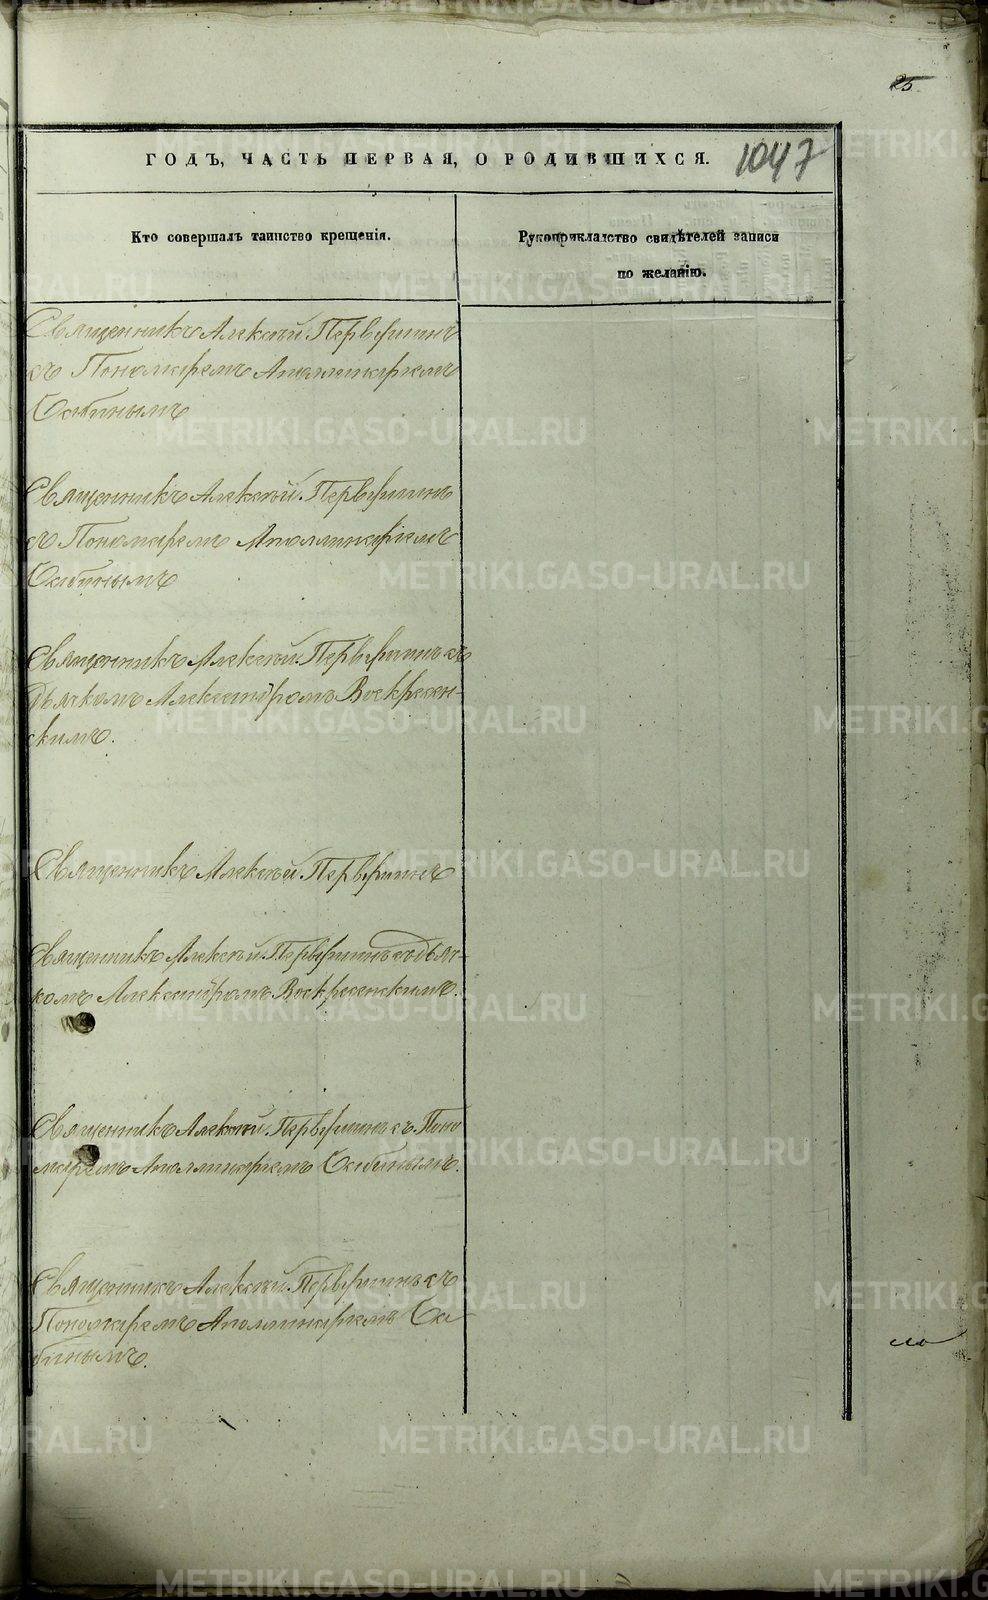 25
ГОДЪ, ЧАСТЬ ПЕРВАЯ, О РОДИВШИХСЯ. 1047
Кто совершалъ таинство крещенія.
Рукоприкладство свидѣтелей записи
по желанію.
Священникъ Алексѣй Первушинъ
съ Пономаремъ Аполлинаріемъ
Сабинымъ
Священникъ Алексѣй Первушинъ
съ Пономаремъ Аполлинаріемъ
Сабинымъ
Священникъ Алексѣй Первушинъ съ
Дьячкомъ Александромъ Воскресен-
скимъ.
Священникъ Алексѣй Первушинъ
Священникъ Алексѣй Первушинъ съ дьяч-
комъ Александромъ Воскресенскимъ.
Священникъ Алексѣй Первушинъ съ Поно
маремъ Аполлинаріемъ Сабинымъ.
Священникъ Алексѣй Первушинъ съ
Пономаремъ Аполлинаріемъ Са
бинымъ.
METRIKI.GASO-URAL.RU